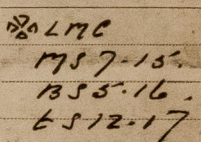 LMC
MS 7.15.
BS 5.16.
ES 12.17